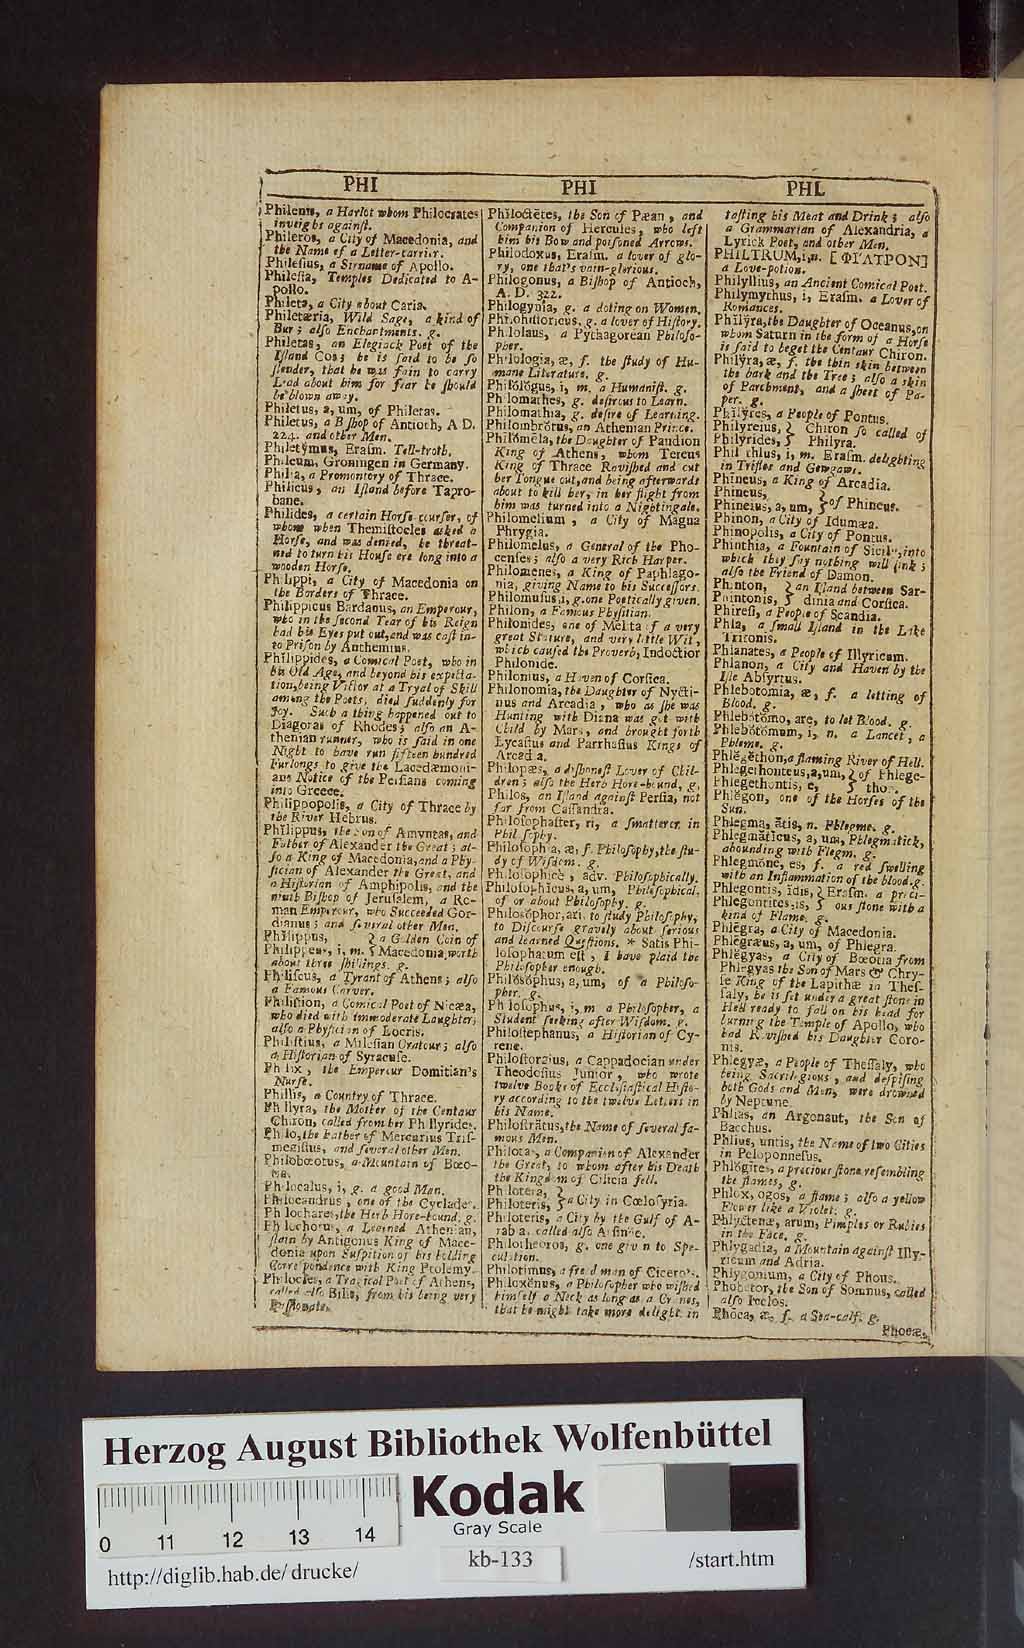 PHI
PHI
PHL
Philenis, a Harlot whom Philocrates
inveighs againſt.
Phileros, a City of Macedonia, and
the Name of a Letter-carrier.
Phileſius, a Sirname of Apollo.
Phileſia, Temples Dedicated to A-
pollo.
Phileta, a City about Caria.
Philetæria, Wild Sage, a kind of
Bur; alſo Enchantments. g.
Philetas, an Elegiack Poet of the
Iſland Cos; he is ſaid to be ſo
ſlender, that he was fain to carry
Lead about him for fear he ſhould
be blown away.
Philetus, a, um, of Philetas.
Philetus, a Biſhop of Antioch, A D.
224. and other Men.
Philetymus, Eraſm. Tell-troth.
Phileum, Groningen in Germany.
Philia, a Promontory of Thrace.
Philicus, an Iſland before Tapro-
bane.
Philides, a certain Horſe-courſer, of
whom when Themiſtocles asked a
Horſe, and was denied, he threat-
ned to turn his Houſe ere long into a
wooden Horſe.
Philippi, a City of Macedonia on
the Borders of Thrace.
Philippicus Bardanus, an Emperour,
who in the ſecond Year of his Reign
had his Eyes put out, and was caſt in-
to Priſon by Anthemius.
Philippides, a Comical Poet, who in
his Old Age, and beyond his expecta-
tion, being Victor at a Tryal of Skill
among the Poets, died ſuddenly for
Joy. Such a thing happened out to
Diagoras of Rhodes; alſo an A-
thenian runner, who is ſaid in one
Night to have run fifteen hundred
Furlongs to give the Lacedæmoni-
ans Notice of the Perſians coming
into Greece.
Philippopolis, a City of Thrace by
the River Hebrus.
Philippus, the Son of Amyntas, and
Father of Alexander the Great; al-
ſo a King of Macedonia, and a Phy-
ſician of Alexander the Great, and
a Hiſtorian of Amphipolis, and the
ninth Biſhop of Jeruſalem, a Ro-
man Emperour, who Succeeded Gor-
dianus; and ſeveral other Men.
Philippus, } a Golden Coin of
Philippeus, i, m. } Macedonia, worth
about three ſhillings. g.
Philiſcus, a Tyrant of Athens; alſo
a Famous Carver.
Philiſtion, a Comical Poet of Nicæa,
who died with immoderate Laughter;
alſo a Phyſician of Locris.
Philiſtius, a Mileſian Oratour; alſo
a Hiſtorian of Syracuſe.
Phillix, the Emperour Domitian's
Nurſe.
Phillis, a Country of Thrace.
Phillyra, the Mother of the Centaur
Chiron, called from her Phillyrides.
Philo, the Father of Mercurius Triſ-
megiſtus, and ſeveral other Men.
Philobœotus, a Mountain of Bœo-
tia.
Philocalus, i, g. a good Man.
Philocandrus, one of the Cyclades.
Philochares, the Herb Hore-hound. g.
Philochorus, a Learned Athenian,
ſlain by Antigonus King of Mace-
donia upon Suſpition of his holding
Correſpondence with King Ptolemy.
Philocles, a Tragical Poet of Athens,
called alſo Bilis, from his being very
Paſſionate.
Philoctetes, the Son of Pæan, and
Companion of Hercules, who left
him his Bow and poiſoned Arrows.
Philodoxus, Eraſm. a lover of glo-
ry, one that's vain-glorious.
Philogonus, a Biſhop of Antioch,
A. D. 322.
Philogynia, g. a doting on Women.
Philohiſtoricus, g. a lover of Hiſtory.
Philolaus, a Pythagorean Philoſo-
pher.
Philologia, æ, f. the ſtudy of Hu-
mane Literature. g.
Philŏlŏgus, i, m. a Humaniſt. g.
Philomathes, g. deſirous to Learn.
Philomathia, g. deſire of Learning.
Philombrŏtus, an Athenian Prince.
Philŏmēla, the Daughter of Pandion
King of Athens, whom Tereus
King of Thrace Raviſhed and cut
her Tongue out, and being afterwards
about to kill her, in her flight from
him was turned into a Nightingale.
Philomelium, a City of Magna
Phrygia.
Philomelus, a General of the Pho-
cenſes; alſo a very Rich Harper.
Philomenes, a King of Paphlago-
nia, giving Name to his Succeſſors.
Philomuſus, i, g. one Poetically given.
Philon, a Famous Phyſitian.
Philonides, one of Melita of a very
great Stature, and very little Wit,
which cauſed the Proverb, Indoctior
Philonide.
Philonius, a Haven of Corſica.
Philonomia, the Daughter of Nycti-
nus and Arcadia, who as ſhe was
Hunting with Diana was got with
Child by Mars, and brought forth
Lycaſtus and Parrhaſius Kings of
Arcadia.
Philopæs, a diſhoneſt Lover of Chil-
dren; alſo the Herb Hore-hound, g.
Philos, an Iſland againſt Perſia, not
far from Caſſandra.
Philoſophaſter, ri, a ſmatterer in
Philoſophy.
Philoſophia, æ, f. Philoſophy, the ſtu-
dy of Wiſdom. g.
Philoſophice, adv. Philoſophically.
Philoſophicus, a, um, Philoſophical,
of or about Philoſophy. g.
Philosŏphor, ari, to ſtudy Philoſophy,
to Diſcourſe gravely about ſerious
and learned Queſtions. * Satis Phi-
loſophatum eſt, I have plaid the
Philoſopher enough.
Philŏsŏphus, a, um, of a Philoſo-
pher. g.
Philoſophus, i, m a Philoſopher, a
Student ſeeking after Wiſdom. g.
Philoſtephanus, a Hiſtorian of Cy-
rene.
Philoſtorgius, a Cappadocian under
Theodoſius Junior, who wrote
twelve Books of Eccleſiaſtical Hiſto-
ry according to the twelve Letters in
his Name.
Philoſtrātus, the Name of ſeveral fa-
mous Men.
Philota, a Companion of Alexander
the Great, to whom after his Death
the Kingdom of Cilicia fell.
Philotera, }
Philoteris, } a City in Cœloſyria.
Philoteris, a City by the Gulf of A-
rabia, called alſo Arſinoe.
Philotheoros, g. one given to Spe-
culation.
Philotimus, a freed man of Cicero's.
Philoxĕnus, a Philoſopher who wiſhed
himſelf a Neck as long as a Cranes,
that he might take more delight in
taſting his Meat and Drink; alſo
a Grammarian of Alexandria, a
Lyrick Poet, and other Men.
PHILTRUM, i, n. [ΦΙΛΤΡΟΝ]
a Love-potion.
Philyllius, an Ancient Comical Poet.
Philymythus, i, Eraſm. a Lover of
Romances.
Philȳra, the Daughter of Oceanus, on
whom Saturn in the form of a Horſe
is ſaid to beget the Centaur Chiron.
Philȳra, æ, f. the thin skin between
the bark and the Tree; alſo a skin
of Parchment, and a ſheet of Pa-
per. g.
Philȳres, a People of Pontus.
Philyreius, } Chiron ſo called of
Philyrides, } Philyra.
Philychlus, i, m. Eraſm. delighting
in Trifles and Gewgaws.
Phineus, a King of Arcadia.
Phineus, }
Phineius, a, um, } of Phineus.
Phinon, a City of Idumæa.
Phinopolis, a City of Pontus.
Phinthia, a Fountain of Sicily, into
which they ſay nothing will ſink;
alſo the Friend of Damon.
Phinton, } an Iſland between Sar-
Phintonis, } dinia and Corſica.
Phireſi, a People of Scandia.
Phla, a ſmall Iſland in the Lake
Tritonis.
Phlanates, a People of Illyricum.
Phlanon, a City and Haven by the
Iſle Abſyrtus.
Phlebotomia, æ, f. a letting of
Blood. g.
Phlebŏtŏmo, are, to let Blood. g.
Phlebŏtŏmum, i, n. a Lancet, a
Phleme. g.
Phlĕgĕthon, a flaming River of Hell.
Phlegethonteus, a, um, } of Phlege-
Phlegethontis, e, } thon.
Phlĕgon, one of the Horſes of the
Sun.
Phlegma, ătis, n. Phlegme. g.
Phlegmătĭcus, a, um, Phlegmatick,
abounding with Flegm. g.
Phlegmŏne, es, f. a red ſwelling
with an Inflammation of the blood. g.
Phlegontis, ĭdis, } Eraſm. a preci-
Phlegontites, is, } ous ſtone with a
kind of Flame. g.
Phlĕgra, a City of Macedonia.
Phlĕgræus, a, um, of Phlegra.
Phlĕgyas, a City of Bœotia from
Phlegyas the Son of Mars & Chry-
ſe King of the Lapithæ in Theſ-
ſaly, he is ſet under a great ſtone in
Hell ready to fall on his head for
burning the Temple of Apollo, who
had Raviſhed his Daughter Coro-
nis.
Phlegyæ, a People of Theſſaly, who
being Sacrilegious, and deſpiſing
both Gods and Men, were drowned
by Neptune.
Phlias, an Argonaut, the Son of
Bacchus.
Phlius, untis, the Name of two Cities
in Peloponneſus.
Phlŏgites, a precious ſtone reſembling
the flames, g.
Phlox, ogos, a flame; alſo a yellow
Flower like a Violet. g.
Phlyctenæ, arum, Pimples or Rubies
in the Face. g.
Phlygadia, a Mountain againſt Illy-
ricum and Adria.
Phlygonium, a City of Phocis.
Phobetor, the Son of Somnus, called
alſo Icelos.
Phōca, æ, f. a Sea-calf. g.
Phocæ,
Herzog August Bibliothek Wolfenbüttel
0 11 12 13 14
Kodak
Gray Scale
http://diglib.hab.de/drucke/
kb-133
/start.htm